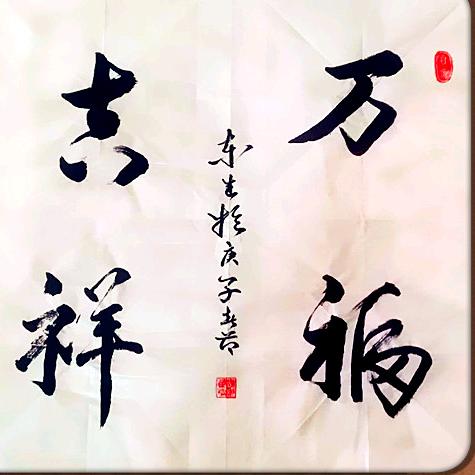 万福
吉祥
东生书于庚子春节